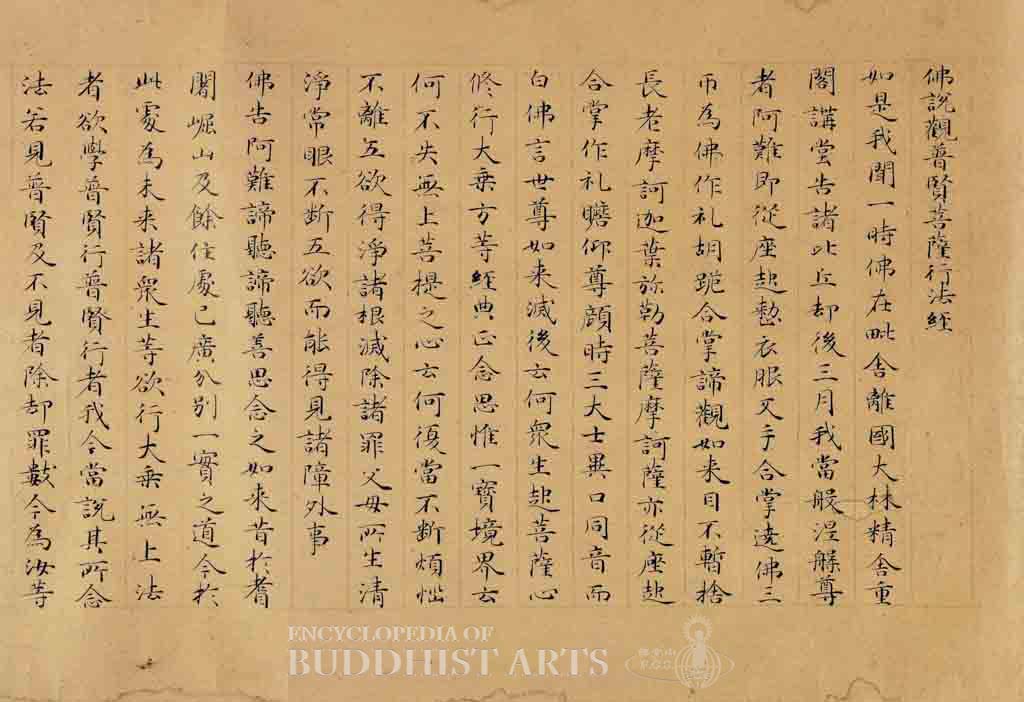 佛說觀普賢菩薩行法經
如是我聞一時佛在毗舍離國大林精舍重
閣講堂告諸比丘却後三月我當般涅槃尊
者阿難即從座起懃衣服叉手合掌遶佛三
帀為佛作礼胡跪合掌諦觀如来目不暫捨
長老摩訶迦葉弥勒菩薩摩訶薩亦從座起
合掌作礼瞻仰尊顔時三大士異口同音而
白佛言世尊如来滅後云何衆生起菩薩心
修行大乗方等經典正念思惟一實境界云
何不失無上菩提之心云何復當不断煩惱
不離五欲得淨諸根滅除諸罪父母所生清
淨常眼不断五欲而能得見諸障外事
佛告阿難諦聽諦聽善思念之如来昔於耆
闍崛山及餘住處已廣分别一實之道今於
此處為未来諸衆生等欲行大乗無上法
者欲學普賢行普賢行者我今當說其所念
法若見普賢及不見者除却罪數今為汝等
ENCYCLOPEDIA OF
BUDDHIST ARTS